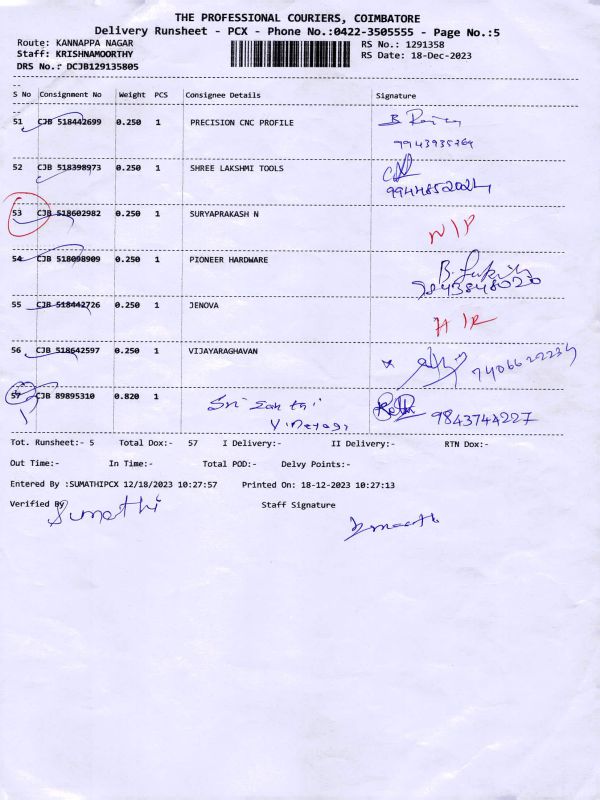 THE PROFESSIONAL COURIERS, COIMBATORE
Delivery Runsheet - PCX - Phone No.:0422-3505555 - Page No.:5
Route: KANNAPPA NAGAR RS No.: 1291358
Staff: KRISHNAMOORTHY RS Date: 18-Dec-2023
DRS No.: DCJB129135805
S No Consignment No Weight PCS Consignee Details Signature
51 CJB 518442699 0.250 1 PRECISION CNC PROFILE
9943935264
52 CJB 518398973 0.250 1 SHREE LAKSHMI TOOLS
9944852024
53 CJB 518602982 0.250 1 SURYAPRAKASH N
N/P
54 CJB 518098909 0.250 1 PIONEER HARDWARE
55 CJB 518442726 0.250 1 JENOVA
56 CJB 518642597 0.250 1 VIJAYARAGHAVAN
57 CJB 89895310 0.820 1 Sri
9843744227
Tot. Runsheet:- 5 Total Dox:- 57 I Delivery:- II Delivery:- RTN Dox:-
Out Time:- In Time:- Total POD:- Delvy Points:-
Entered By :SUMATHIPCX 12/18/2023 10:27:57 Printed On: 18-12-2023 10:27:13
Verified By Staff Signature
Sumathi